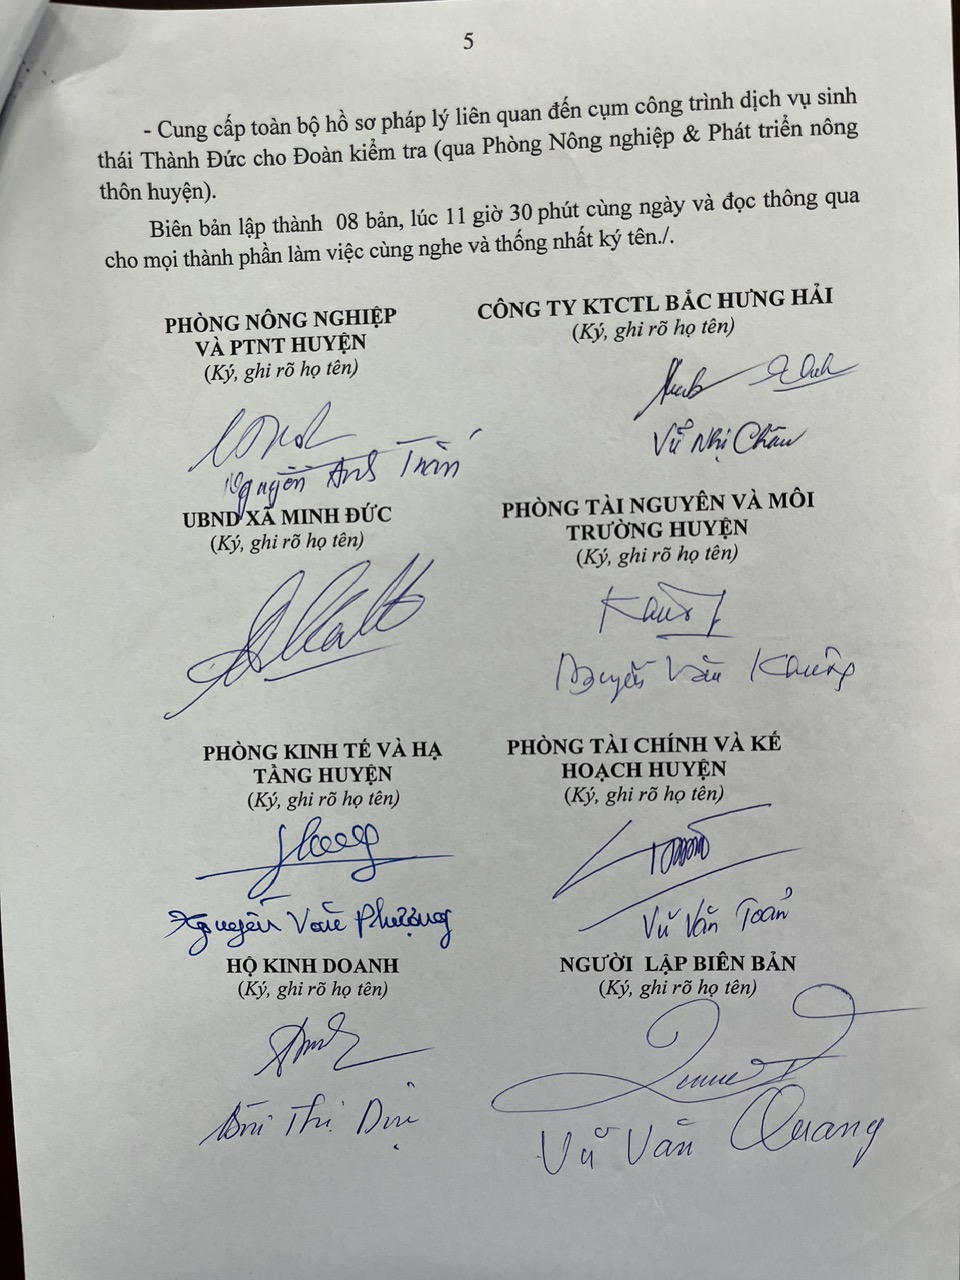 5
- Cung cấp toàn bộ hồ sơ pháp lý liên quan đến cụm công trình dịch vụ sinh
thái Thành Đức cho Đoàn kiểm tra (qua Phòng Nông nghiệp & Phát triển nông
thôn huyện).
Biên bản lập thành 08 bản, lúc 11 giờ 30 phút cùng ngày và đọc thông qua
cho mọi thành phần làm việc cùng nghe và thống nhất ký tên./.
PHÒNG NÔNG NGHIỆP
VÀ PTNT HUYỆN
(Ký, ghi rõ họ tên)
CÔNG TY KTCTL BẮC HƯNG HẢI
(Ký, ghi rõ họ tên)
Nguyễn Anh
Vũ Nhị Châu
UBND XÃ MINH ĐỨC
(Ký, ghi rõ họ tên)
PHÒNG TÀI NGUYÊN VÀ MÔI
TRƯỜNG HUYỆN
(Ký, ghi rõ họ tên)
Nguyễn Văn
PHÒNG KINH TẾ VÀ HẠ
TẦNG HUYỆN
(Ký, ghi rõ họ tên)
PHÒNG TÀI CHÍNH VÀ KẾ
HOẠCH HUYỆN
(Ký, ghi rõ họ tên)
Nguyễn Văn Phượng
Vũ Văn Toản
HỘ KINH DOANH
(Ký, ghi rõ họ tên)
NGƯỜI LẬP BIÊN BẢN
(Ký, ghi rõ họ tên)
Bùi Thị
Vũ Văn Quang